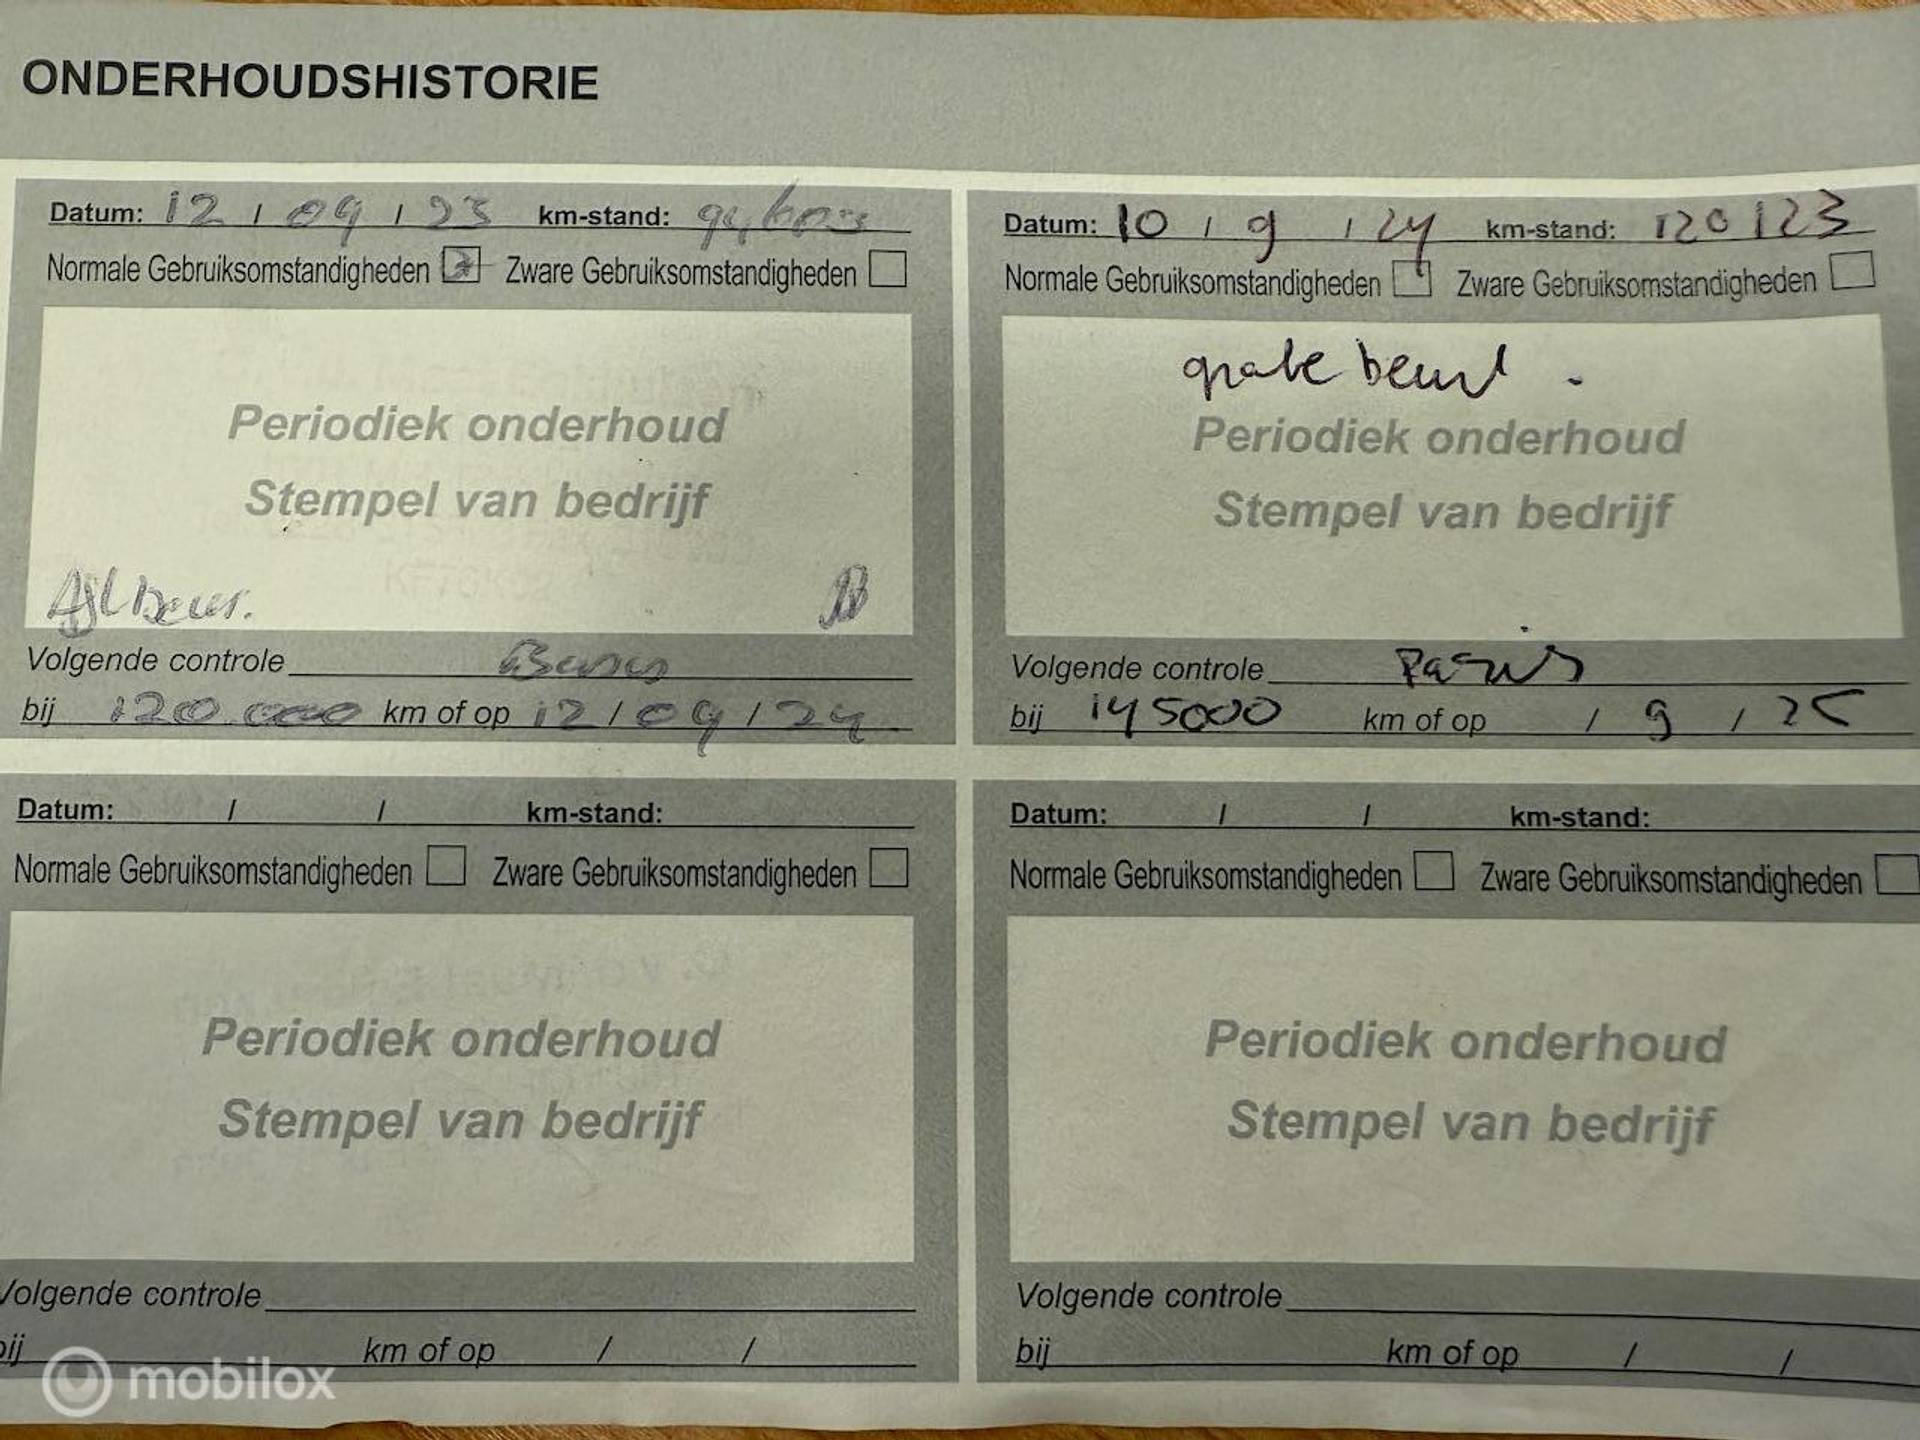 ONDERHOUDSHISTORIE
Datum: 12 / 09 / 23 km-stand:
Normale Gebruiksomstandigheden Zware Gebruiksomstandigheden
Periodiek onderhoud
Stempel van bedrijf
Volgende controle
bij 120.000 km of op 12 / 09 / 24
Datum: 10 / 9 / 24 km-stand: 120123
Normale Gebruiksomstandigheden Zware Gebruiksomstandigheden
grote beurt.
Periodiek onderhoud
Stempel van bedrijf
Volgende controle
bij 145000 km of op / 9 / 25
Datum: / / km-stand:
Normale Gebruiksomstandigheden Zware Gebruiksomstandigheden
Periodiek onderhoud
Stempel van bedrijf
Volgende controle
bij km of op / /
Datum: / / km-stand:
Normale Gebruiksomstandigheden Zware Gebruiksomstandigheden
Periodiek onderhoud
Stempel van bedrijf
Volgende controle
bij km of op / /
mobilox